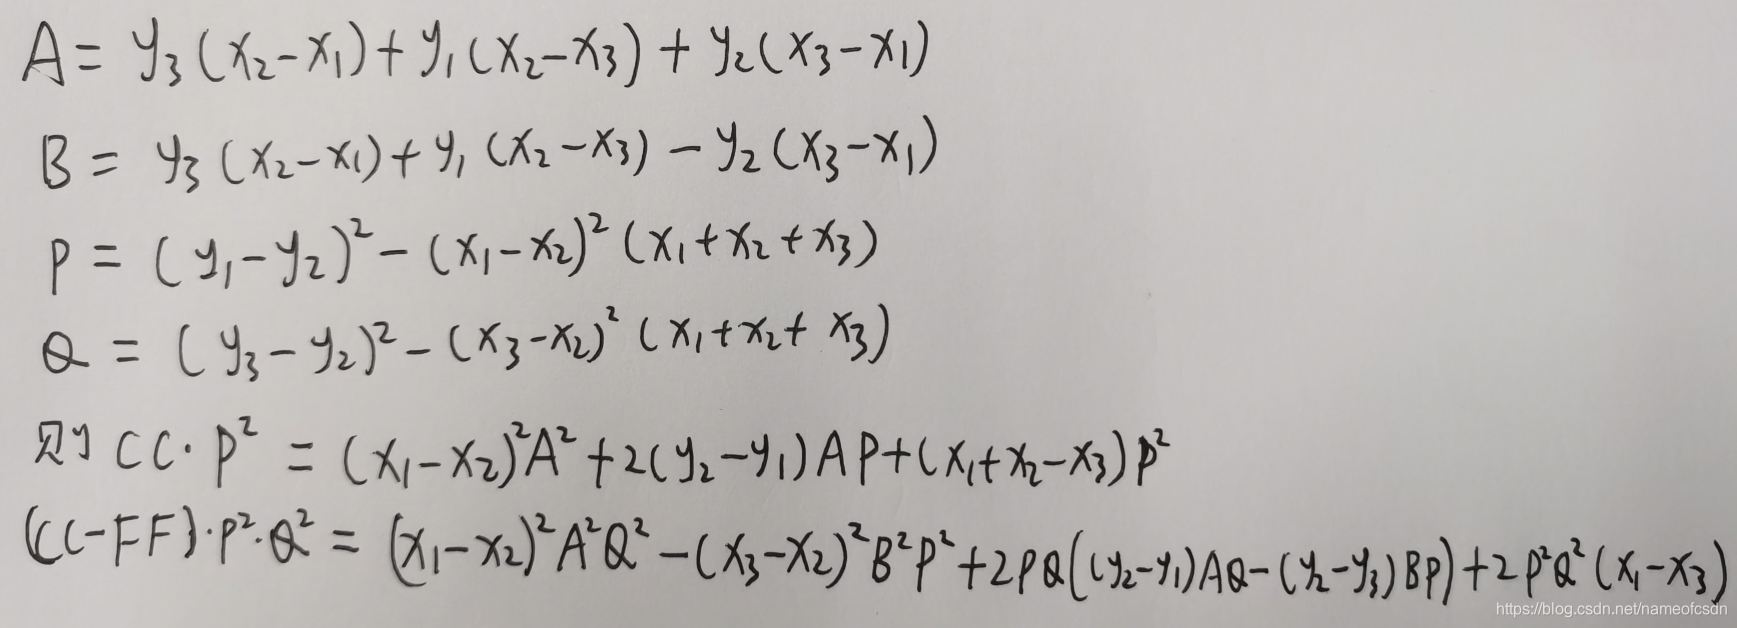 A = y₃(x₂-x₁)+y₁(x₂-x₃)+y₂(x₃-x₁)
B = y₃(x₂-x₁)+y₁(x₂-x₃)-y₂(x₃-x₁)
P = (y₁-y₂)²-(x₁-x₂)²(x₁+x₂+x₃)
Q = (y₃-y₂)²-(x₃-x₂)²(x₁+x₂+x₃)
则 CC·P² = (x₁-x₂)²A²+2(y₂-y₁)AP+(x₁+x₂-x₃)P²
(CC-FF)·P²·Q² = (x₁-x₂)²A²Q²-(x₃-x₂)²B²P²+2PQ((y₂-y₁)AQ-(y₂-y₃)BP)+2P²Q²(x₁-x₃)
https://blog.csdn.net/nameofcsdn